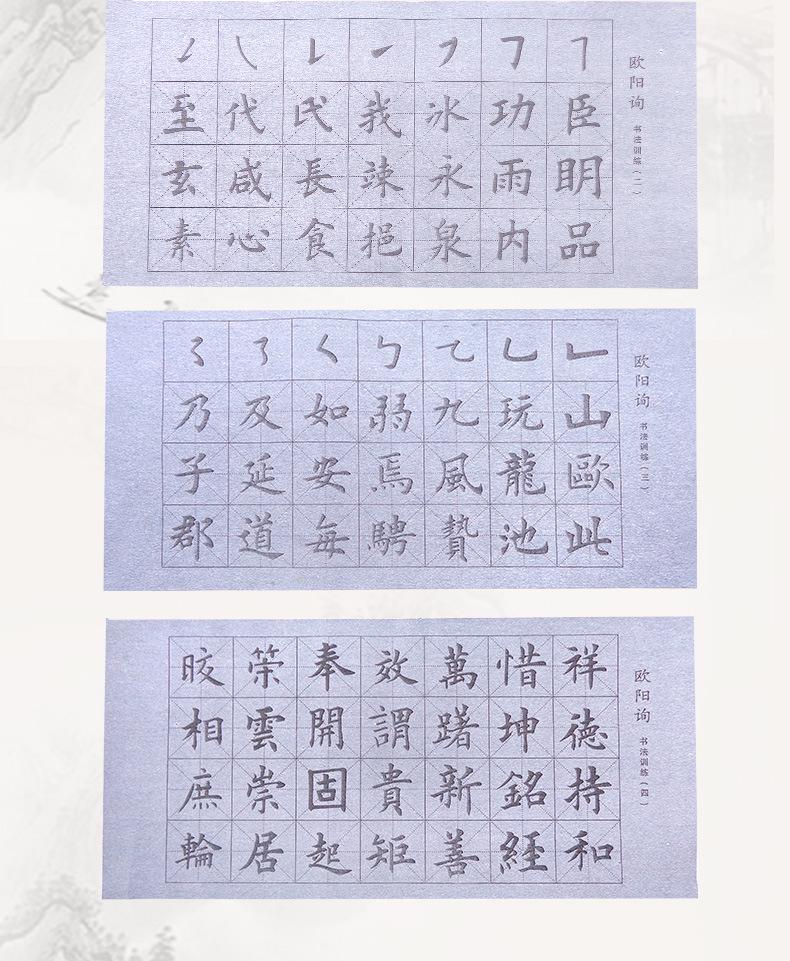 欧阳询 书法训练(二)
臣功冰我氏代至
明雨永竦長咸玄
品内泉挹食心素
欧阳询 书法训练(三)
山玩九弱如及乃
歐龍風焉安延子
此池贄騁每道郡
欧阳询 书法训练(四)
祥惜萬效奉筞晈
德坤躇謂開雲相
持銘新貴固崇庶
和經善矩起居輪